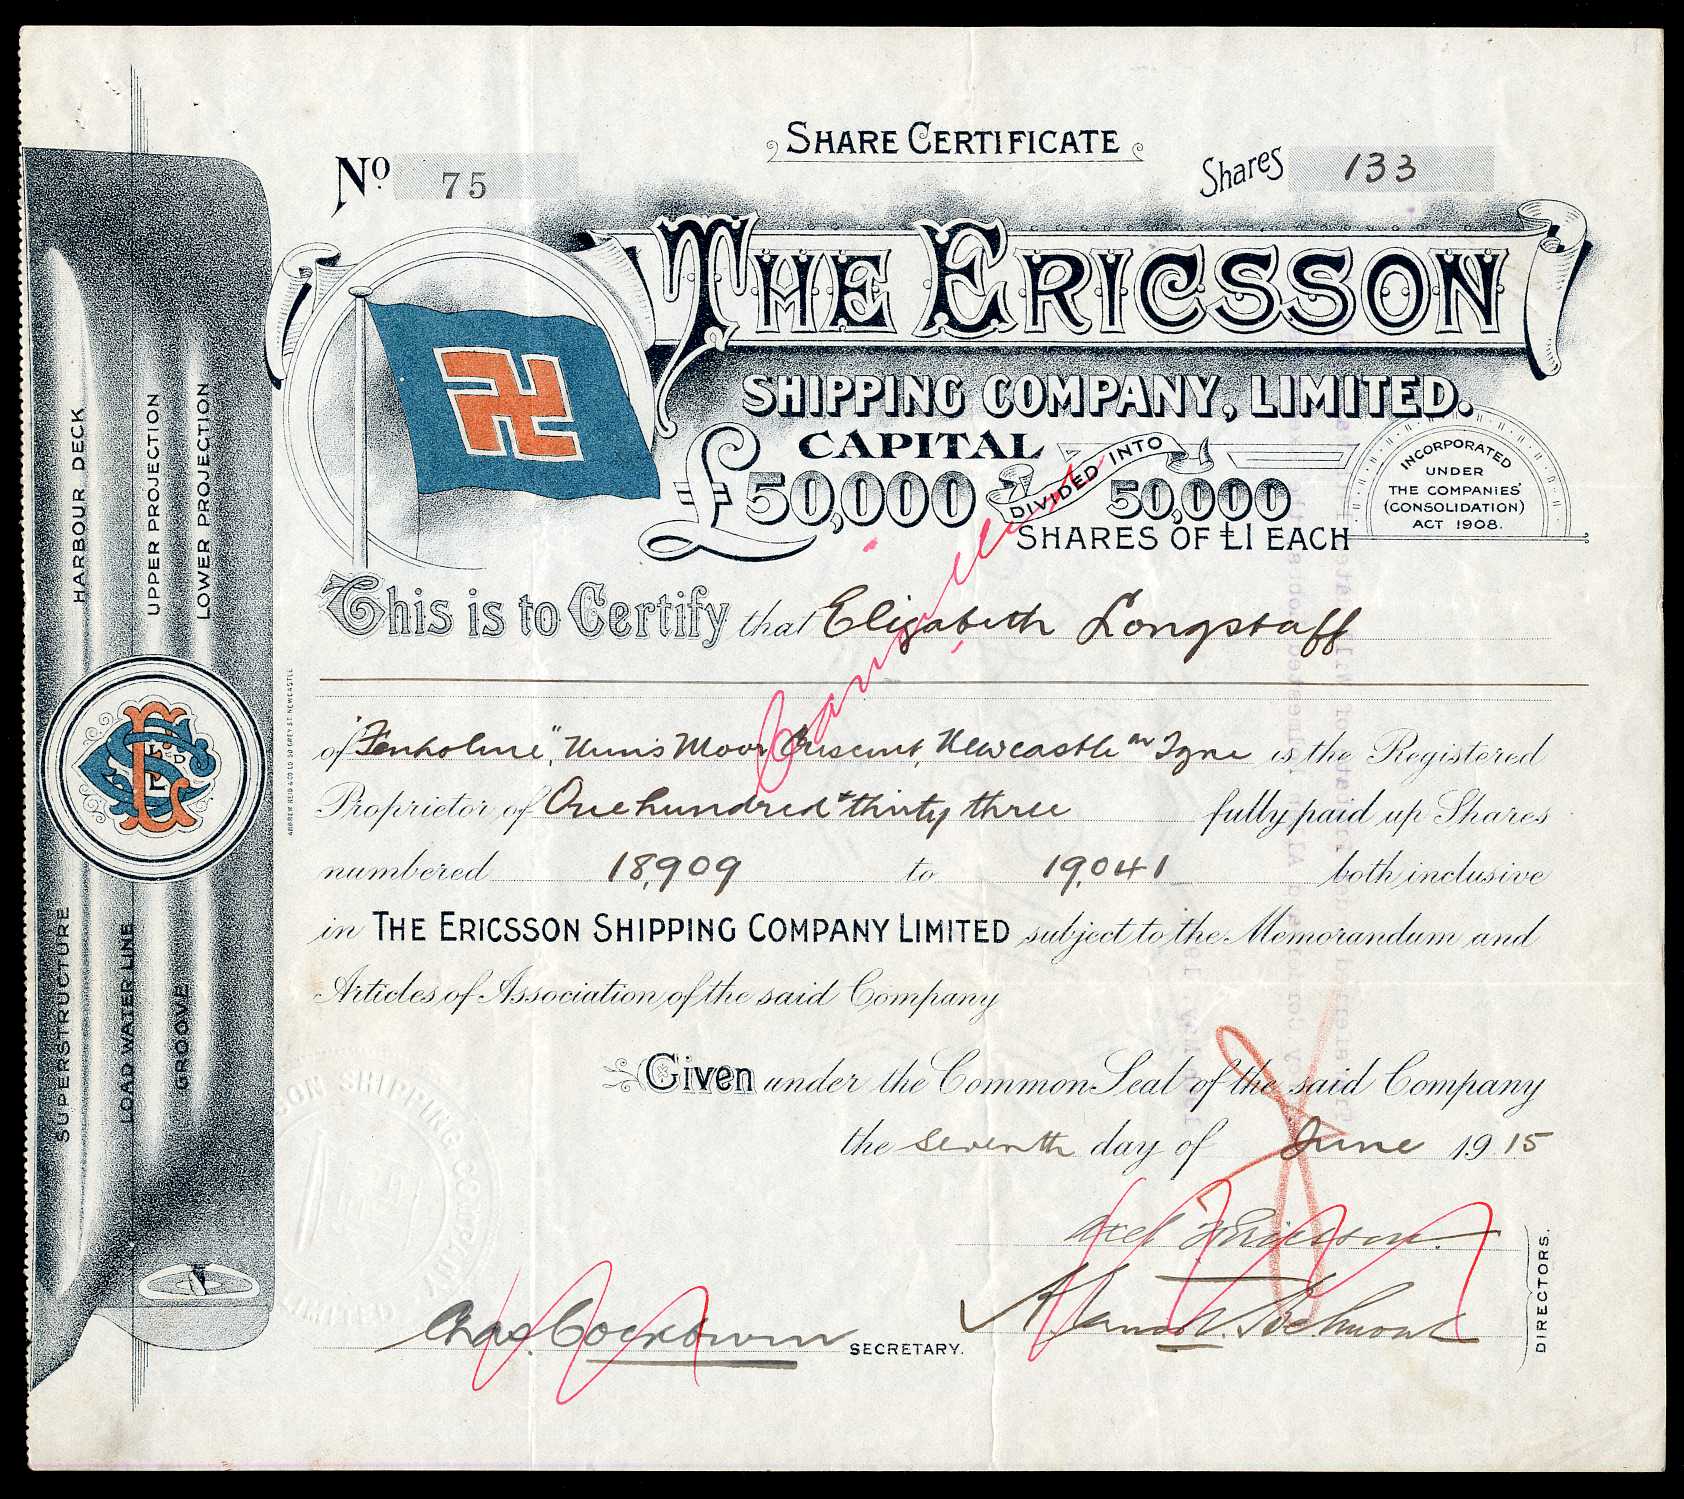 SHARE CERTIFICATE
No. 75
Shares 133
THE ERICSSON
SHIPPING COMPANY, LIMITED.
CAPITAL
£50,000 DIVIDED INTO 50,000
SHARES OF £1 EACH
INCORPORATED
UNDER
THE COMPANIES'
(CONSOLIDATION)
ACT 1908.
This is to Certify that Elizabeth Longstaff
Cancelled
of "Fenholme", Nuns Moor Crescent, Newcastle on Tyne is the Registered
Proprietor of One hundred & thirty three fully paid up Shares
numbered 18,909 to 19,041 both inclusive
in THE ERICSSON SHIPPING COMPANY LIMITED subject to the Memorandum and
Articles of Association of the said Company
Given under the Common Seal of the said Company
the Seventh day of June 1915
Axel Ericsson.
DIRECTORS.
SECRETARY.
HARBOUR DECK
UPPER PROJECTION
LOWER PROJECTION
SUPERSTRUCTURE
LOAD WATER LINE
GROOVE
ANDREW REID & CO LD 50 GREY ST. NEWCASTLE
SHIPPING COMPANY
LIMITED